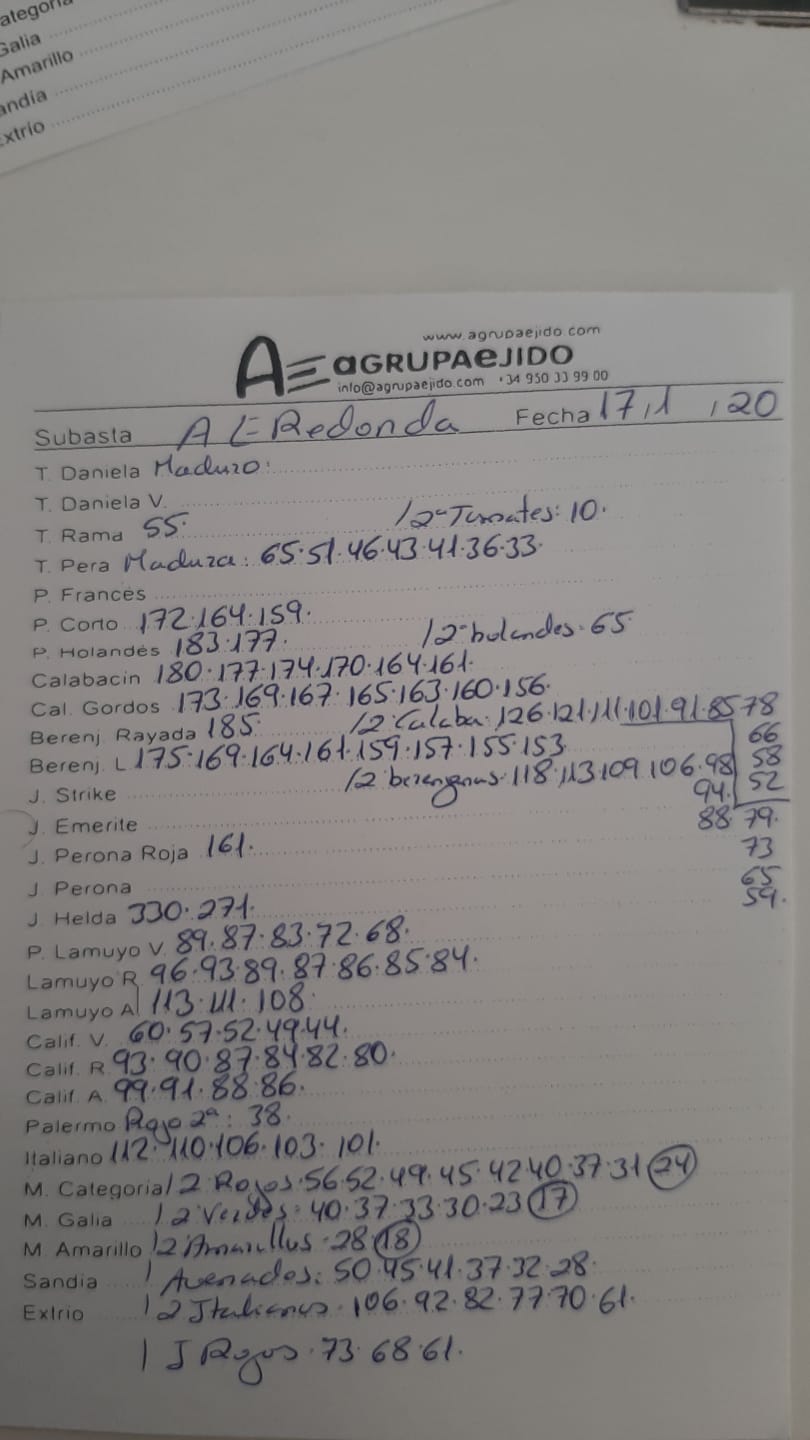 ategoria
Galia
Amarillo
andía
Extrío
www.agrupaejido.com
AE aGRUPAeJIDO
info@agrupaejido.com +34 950 33 99 00
Subasta A L-Redonda Fecha 17,1,20
T. Daniela Maduro:
T. Daniela V.
T. Rama 55. / 2ª Tomates: 10.
T. Pera Madura: 65.51.46.43.41.36.33.
P. Francés
P. Corto 172.164.159.
P. Holandés 183.177. / 2ª holandes. 65
Calabacin 180.177.174.170.164.161.
Cal. Gordos 173.169.167.165.163.160.156.
Berenj. Rayada 185. / 2 Calaba. 126.121.111.101.91.85.78
66
Berenj. L 175.169.164.161.159.157.155.153
58
/ 2 berengenas. 118.113.109.106.98
52
J. Strike 94.
J. Emerite 88.79.
J. Perona Roja 161.
73
J Perona
65
J. Helda 330.271.
59.
P. Lamuyo V. 89.87.83.72.68.
Lamuyo R 96.93.89.87.86.85.84.
Lamuyo A 113.111.108.
Calif. V. 60.57.52.49.44.
Calif. R. 93.90.87.84.82.80.
Calif. A. 99.91.88.86.
Palermo Rojo 2ª: 38.
Italiano 112.110.106.103.101.
M. Categoria / 2 Rojos.56.52.49.45.42.40.37.31 24
M. Galia / 2 Verdes: 40.37.33.30.23 17
M Amarillo / 2 Amarillos.28.18
Sandia / Avenados: 50.45.41.37.32.28.
Extrio / 2 Italianos.106.92.82.77.70.61.
/ J Rojos.73.68.61.